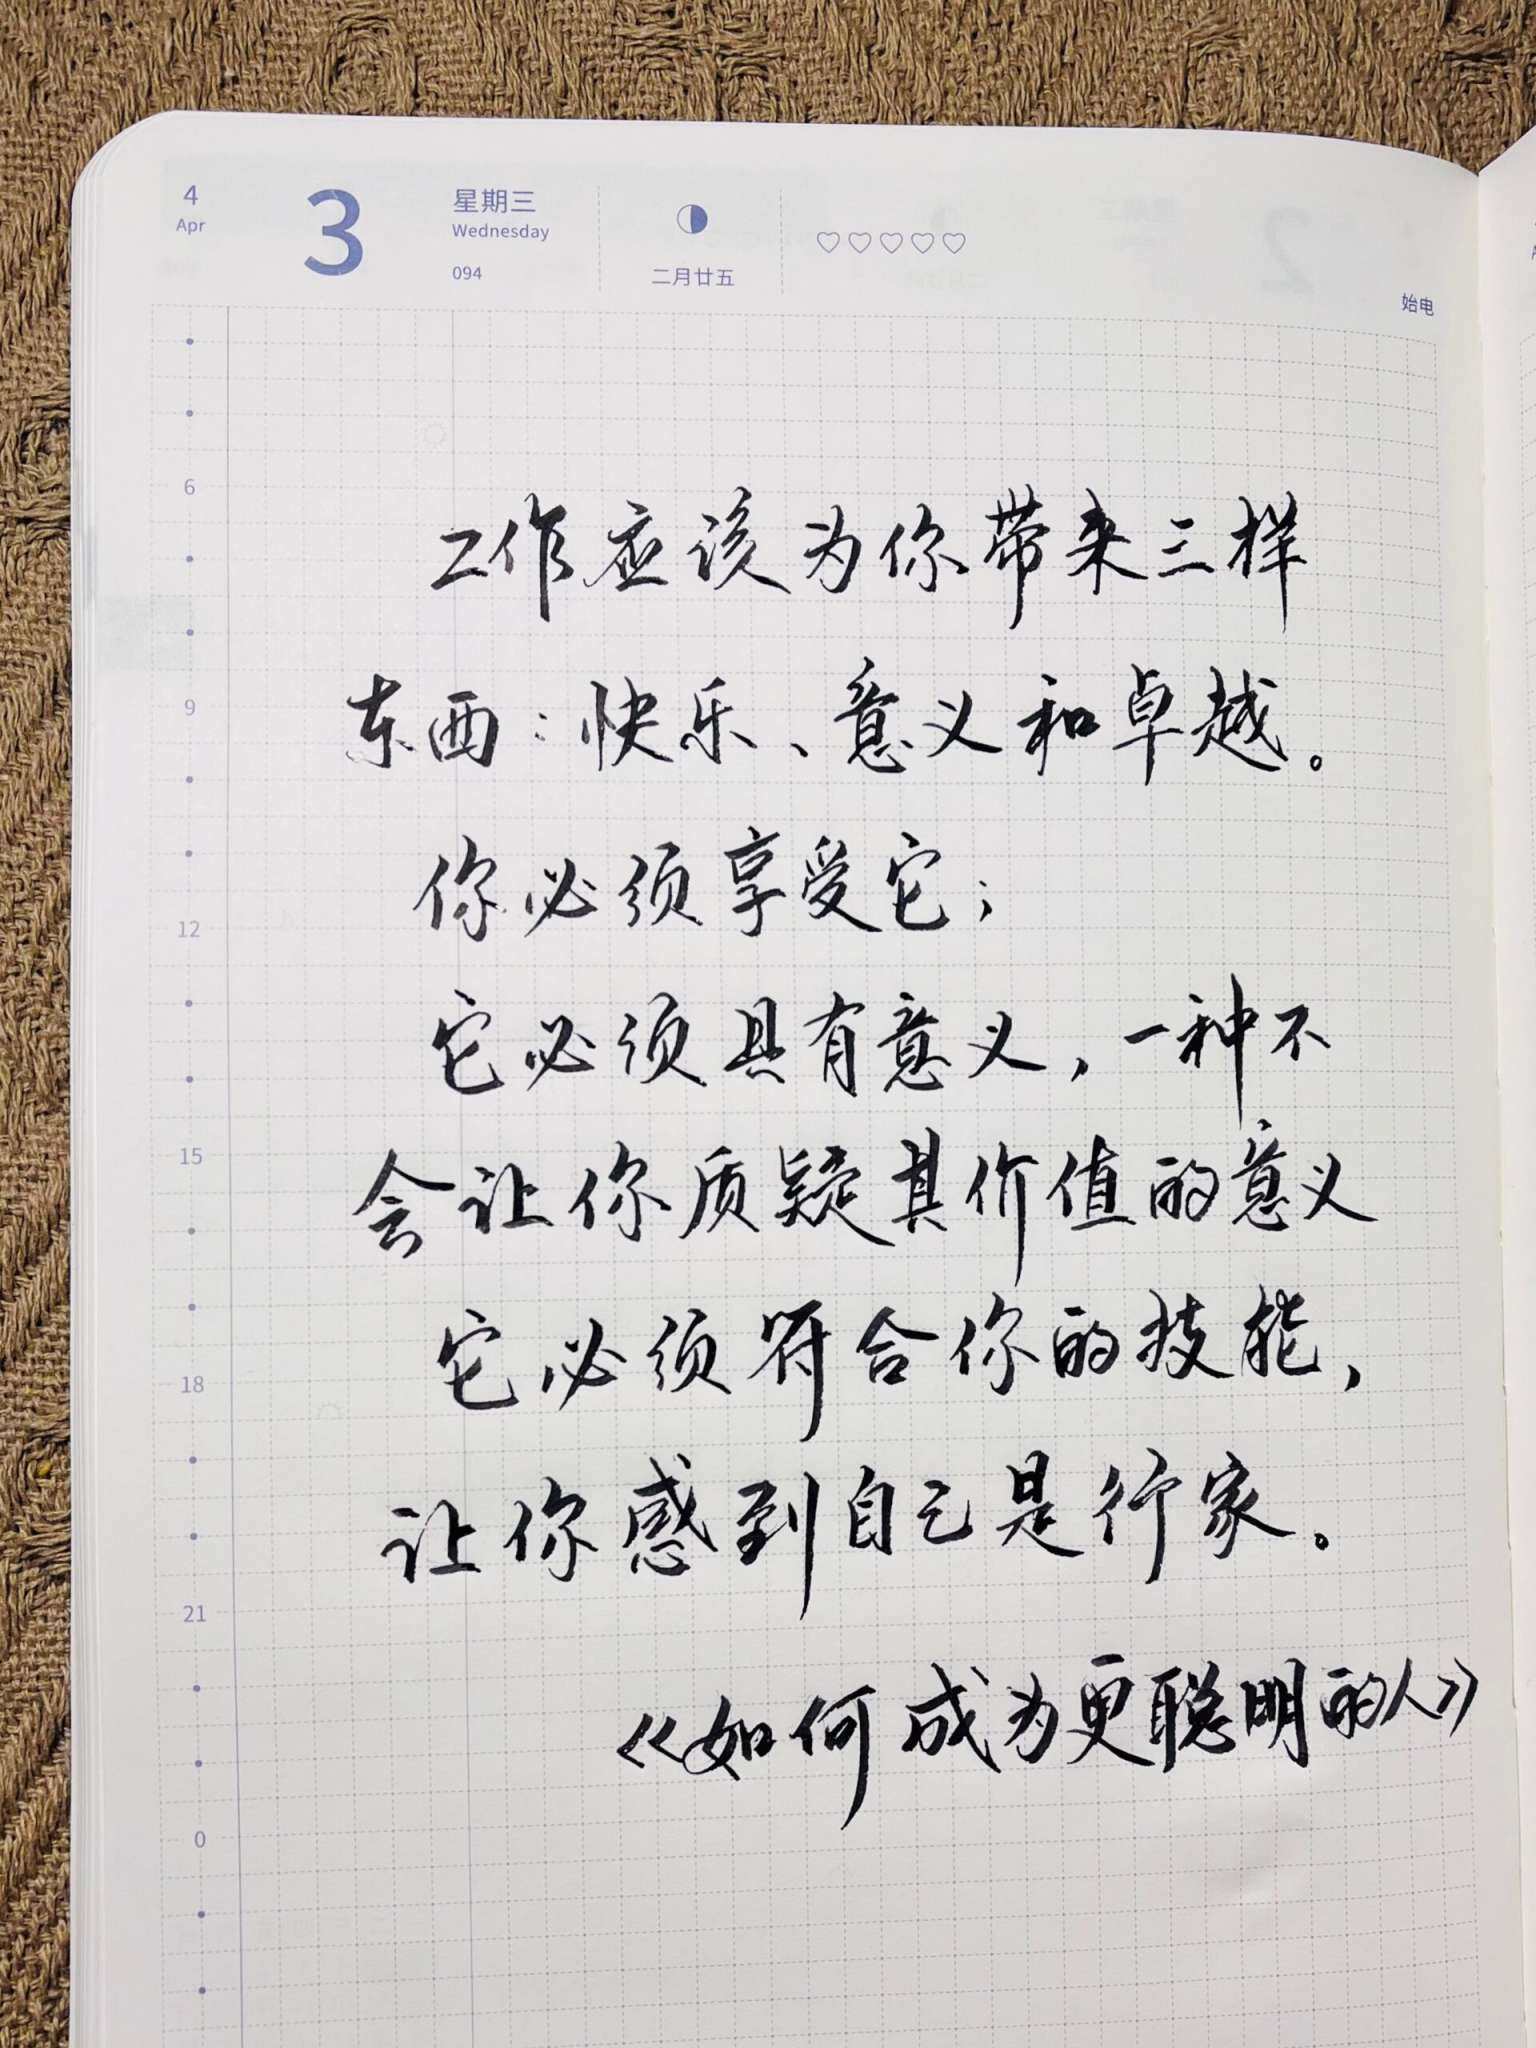 4
Apr
3
星期三
Wednesday
094
二月廿五
始电
6
9
12
15
18
21
0
工作应该为你带来三样
东西：快乐、意义和卓越。
你必须享受它；
它必须具有意义，一种不
会让你质疑其价值的意义
它必须符合你的技能，
让你感到自己是行家。
《如何成为更聪明的人》